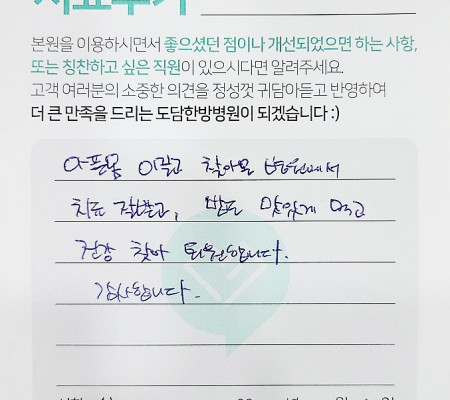 치료후기
본원을 이용하시면서 좋으셨던 점이나 개선되었으면 하는 사항,
또는 칭찬하고 싶은 직원이 있으시다면 알려주세요.
고객 여러분의 소중한 의견을 정성껏 귀담아듣고 반영하여
더 큰 만족을 드리는 도담한방병원이 되겠습니다 :)
아픈몸 이끌고 찾아온 병원에서
치료 잘받고, 밥도 맛있게 먹고
건강 찾아 퇴원합니다.
감사합니다.